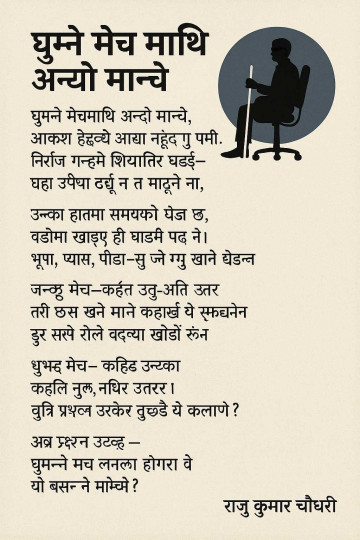 घुम्ने मेच माथि
अन्यो मान्चे
घुमन्ने मेचमाथि अन्दो मान्चे,
आकश हेह्रव्ये आद्या नहूंद गु पमी.
निर्राज गन्हमे शियातिर घडई–
घहा उपीधा ढर्द्यू न त माटूने ना,
उन्का हातमा समयको घेडा छ,
वडोमा खाड्ए ही घाडमी पढ ने।
भूपा, प्यास, पीडा–सु ज्ने ग्गु खाने घेडन्त
जन्छु मेच–कर्हत उतु-अति उतर
तरी छस खने माने कहार्ख ये
डुर सरपे रोले वदव्या खोडों रुंन
धुभद मेच– कहिड उन्टका
कहलि नुल, नधिर उतरर।
वुत्रि प्रश्वल उरकेर वुछडै ये कलाणे?
अब्र प्रश्रन उटव्ह –
घुमन्ने मच लनला होगरा वे
यो बसन्ने माम्च्मे?
राजु कुमार चौधरी